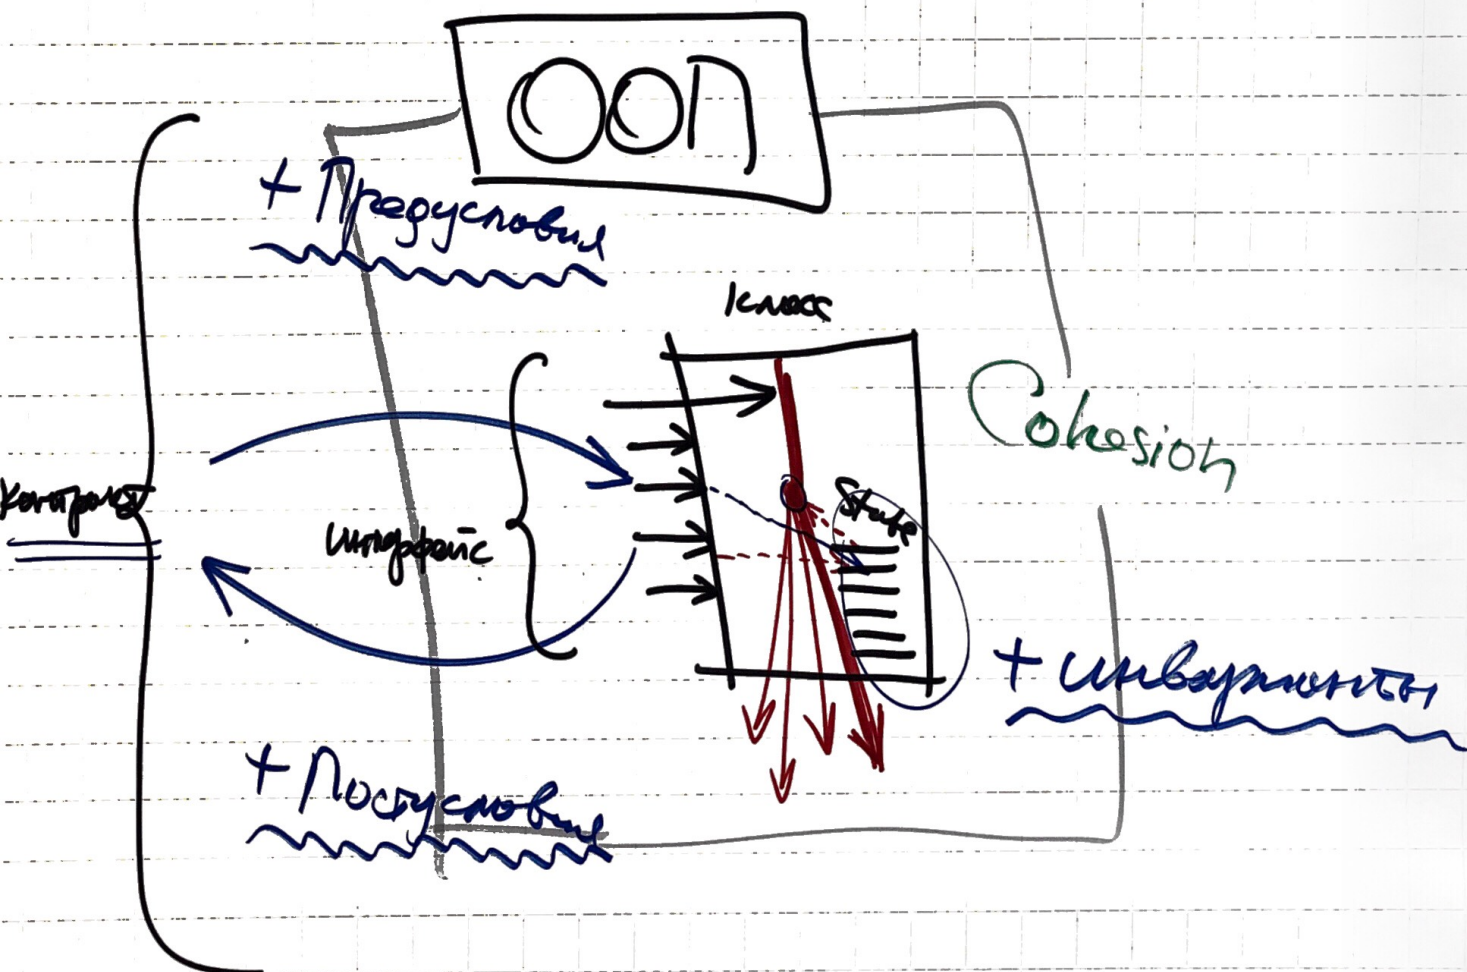 ООП
+ Предусловия
Класс
Cohesion
State
Контракт
Интерфейс
+ инварианты
+ Постусловия